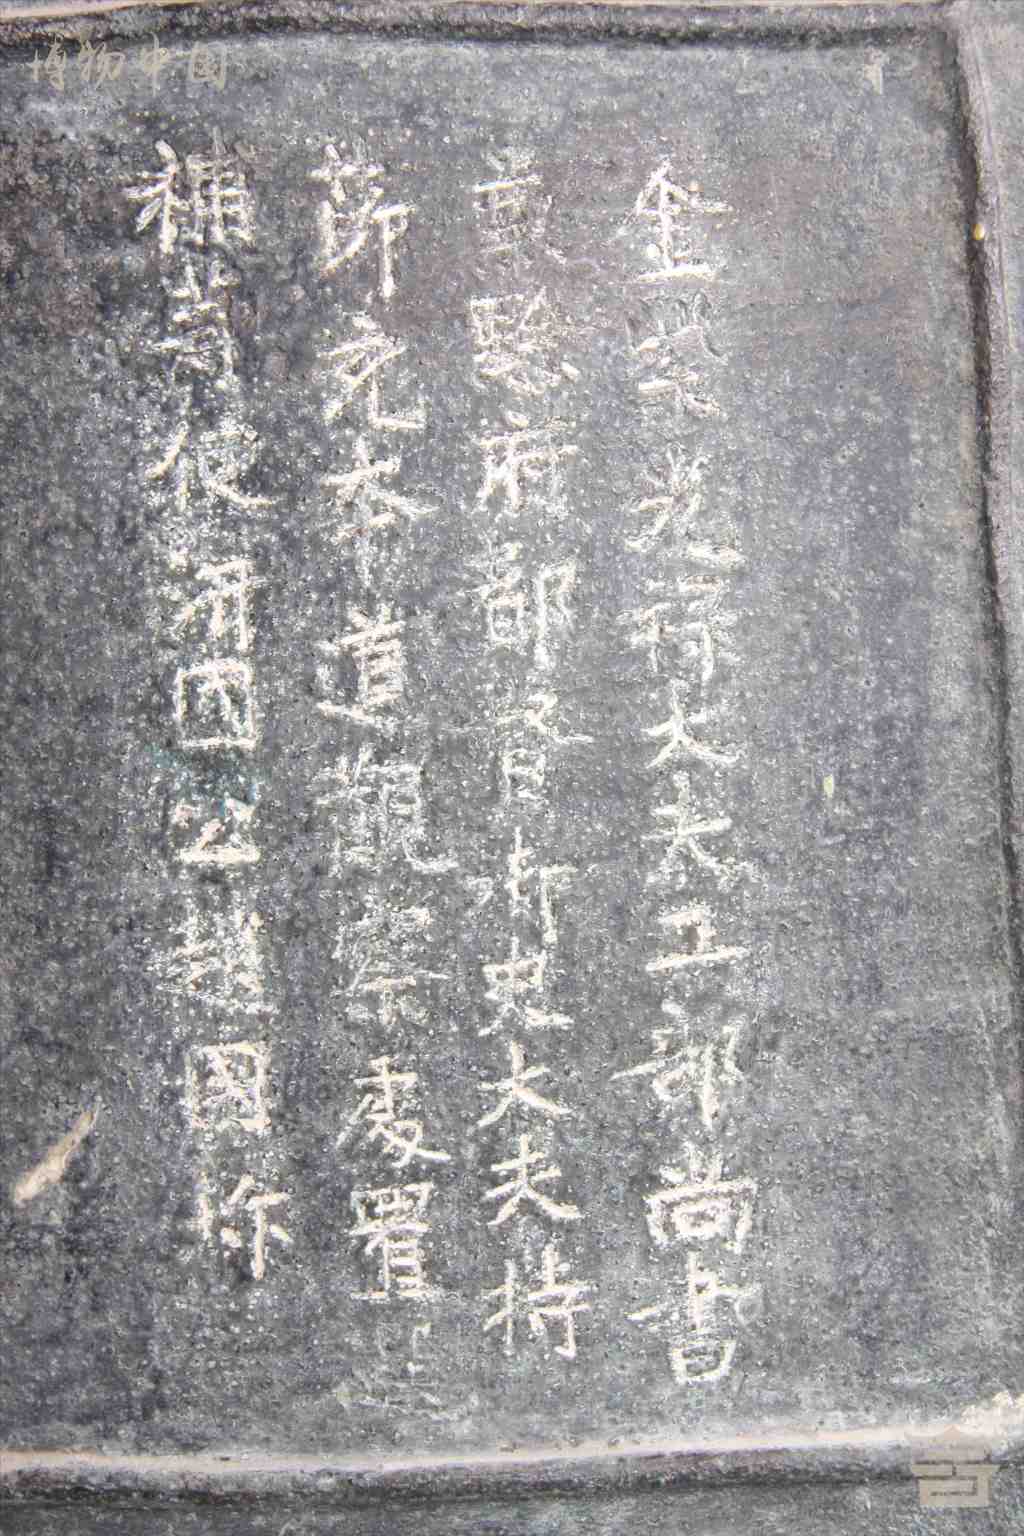 博物中国
金紫光禄大夫工部尚書
兼黔府都督御史大夫持
節充本道觀察處置選
補等使汧國公趙國珎